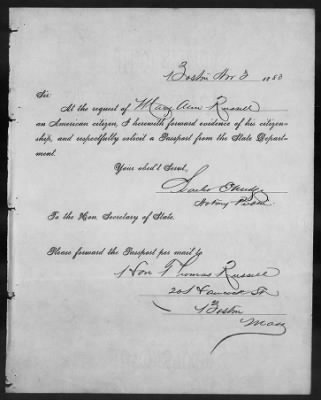 Boston Nov 3 1883
Sir:
At the request of Mary Ann Russell
an American citizen, I herewith forward evidence of his citizen-
ship, and respectfully solicit a Passport from the State Depart-
ment.
Your obed't Servt,
Notary Public
To the Hon. Secretary of State.
Please forward the Passport per mail to
Hon Thomas Russell
201 Hancock St
Boston
Mass